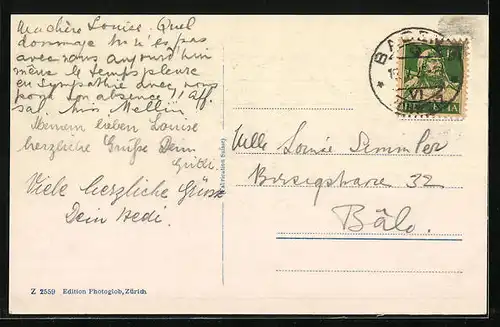 Ma chère Louise. Quel
dommage tu n'es pas
avec nous aujourd'hui
même le temps pleure
en sympathie avec nous
pour ton absence, aff.
sal. Miss
Meinem lieben Louise
herzliche Grüße Dein
Gritli
Viele herzliche Grüsse
Dein Hedi.
BADEN
HELVETIA
Mlle Louise Simmler
Birsigstrasse 32
Bâle.
Z 2559 Edition Photoglob, Zürich